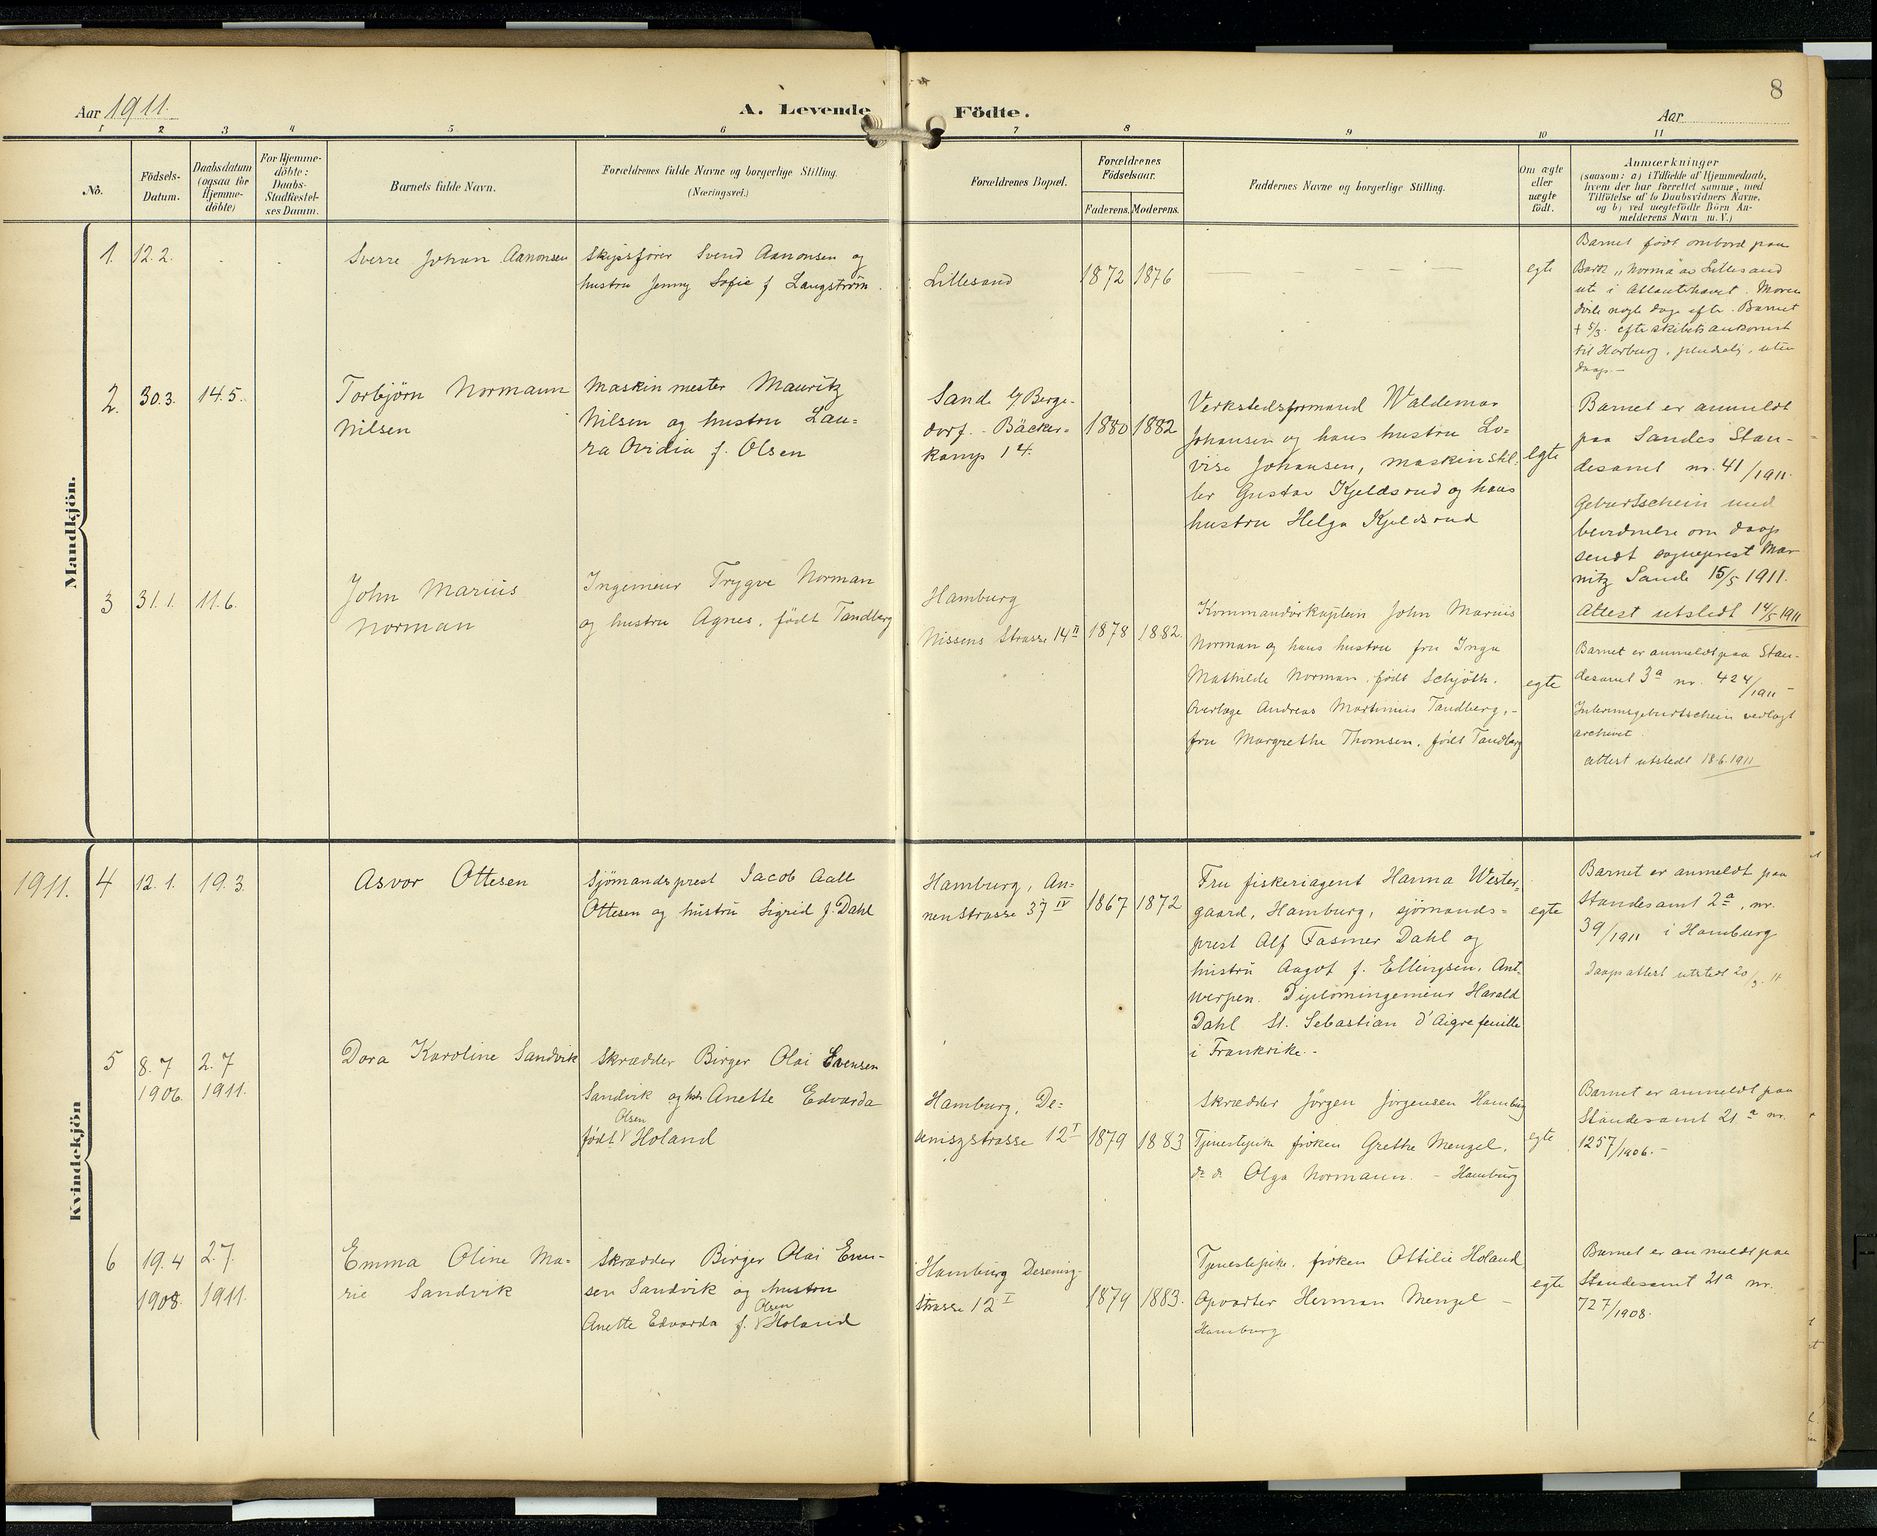 8
Aar 1911.
A. Levende Födte.
Aar
1 2 3 4 5. 6 7 8 9 10 11
No.
Födsels-
Datum.
Daabsdatum
(ogsaa for
Hjemme-
döbte)
For Hjemme-
döbte:
Daabs-
Stadfæstel-
ses Datum.
Barnets fulde Navn.
Forældrenes fulde Navne og borgerlige Stilling.
(Næringsvei.)
Forældrenes Bopæl.
Forældrenes
Födselsaar.
Faderens.
Moderens.
Faddernes Navne og borgerlige Stilling.
Om ægte
eller
uægte
født.
Anmærkninger
(saasom: a) i Tilfælde af Hjemmedaab,
hvem der har forrettet samme, med
Tilföielse af to Daabsvidners Navne,
og b) ved uægtefödte Börn An-
melderens Navn m. V.)
Mandkjön.
1. 12.2. . .
Sverre Johan Aanonsen
Skipsfører Svend Aanonsen og
hustru Jenny Sofie f Langstrøm.
Lillesand
1872 1876
— — — — — —
egte
Barnet født ombord paa
Bark „Norma" av Lillesand
ute i Atlanterhavet. Moren
døde nogle dage efter. Barnet
+ 5/3. efter skibets ankomst
til Harburg, pludselig, uten
daap. —
2. 30.3. 14.5.
Torbjørn Normann
Nilsen
Maskinmester Mauritz
Nilsen og hustru Lau-
ra Ovidia f. Olsen
Sande b/ Berge-
dorf. - Bäcker-
kamp 14.
1880 1882
Verkstedsformand Waldemar
Johansen og hans hustru Lo-
vise Johansen, maskinstil-
ler Gustav Kjeldsrud og hans
hustru Helga Kjeldsrud
egte
Barnet er anmeldt
paa Sandes Stan-
desamt nr. 41/1911.
Geburtsschein med
bevidnelse om daap
sendt sogneprest Mar-
nitz Sande 15/5 1911.
Attest utstedt 14/5 1911
3 31.1. 11.6.
John Marius
Norman
Ingeniør Trygve Norman
og hustru Agnes, født Tandberg
Hamburg
Nissens Strasse 14 II
1878 1882.
Kommandørkaptein John Marius
Norman og hans hustru fru Inga
Mathilde Norman, født Schjøth.
Overlæge Andreas Martinius Tandberg, -
fru Margrethe Thomsen, født Tandberg
egte
Barnet er anmeldt paa Stan-
desamt 3a nr. 424/1911 -
Interimsgeburtsschein vedlagt
archivet.
Attest utstedt 18.6.1911
Kvindekjön
1911. 4 12.1. 19.3
Asvor Ottesen
Sjömandsprest Jacob Aall
Ottesen og hustru Sigrid f. Dahl
Hamburg, An-
nenstrasse 37 IV
1867 1872
Fru fiskeriagent Hanna Wester-
gaard, Hamburg, sjömands-
prest Alf Fasmer Dahl og
hustru Aagot f. Ellingsen, Ant-
werpen. Diplomingeniør Harald
Dahl St. Sebastian d'Aigrefeuille
i Frankrike. -
egte
Barnet er anmeldt paa
Standesamt 2a, nr.
39/1911 i Hamburg
Daapsattest utstedt 20/3. 11
5 8.7 2.7
1906. 1911.
Dora Karoline Sandvik
Skrædder Birger Olai Evensen
Sandvik og hustru Anette Edvarda
Olsen
født Holand
Hamburg, De-
seniszstrasse 12 I
1879 1883
Skrædder Jørgen Jørgensen Hamburg
Tjenestepike frøken Grethe Menzel,
do do Olga Normann. - Hamburg
egte
Barnet er anmeldt paa
Standesamt 21a nr.
1257/1906. -
6 19.4 2.7.
1908. 1911.
Emma Oline Ma-
rie Sandvik
Skrædder Birger Olai Even-
sen Sandvik og hustru
Olsen
Anette Edvarda f. Holand
Hamburg Desenisz-
strasse 12 I
1879 1883.
Tjenestepike, frøken Ottilie Holand
Opvarter Herman Menzel -
Hamburg
egte
Barnet er anmeldt paa
Standesamt 21a nr.
727/1908.